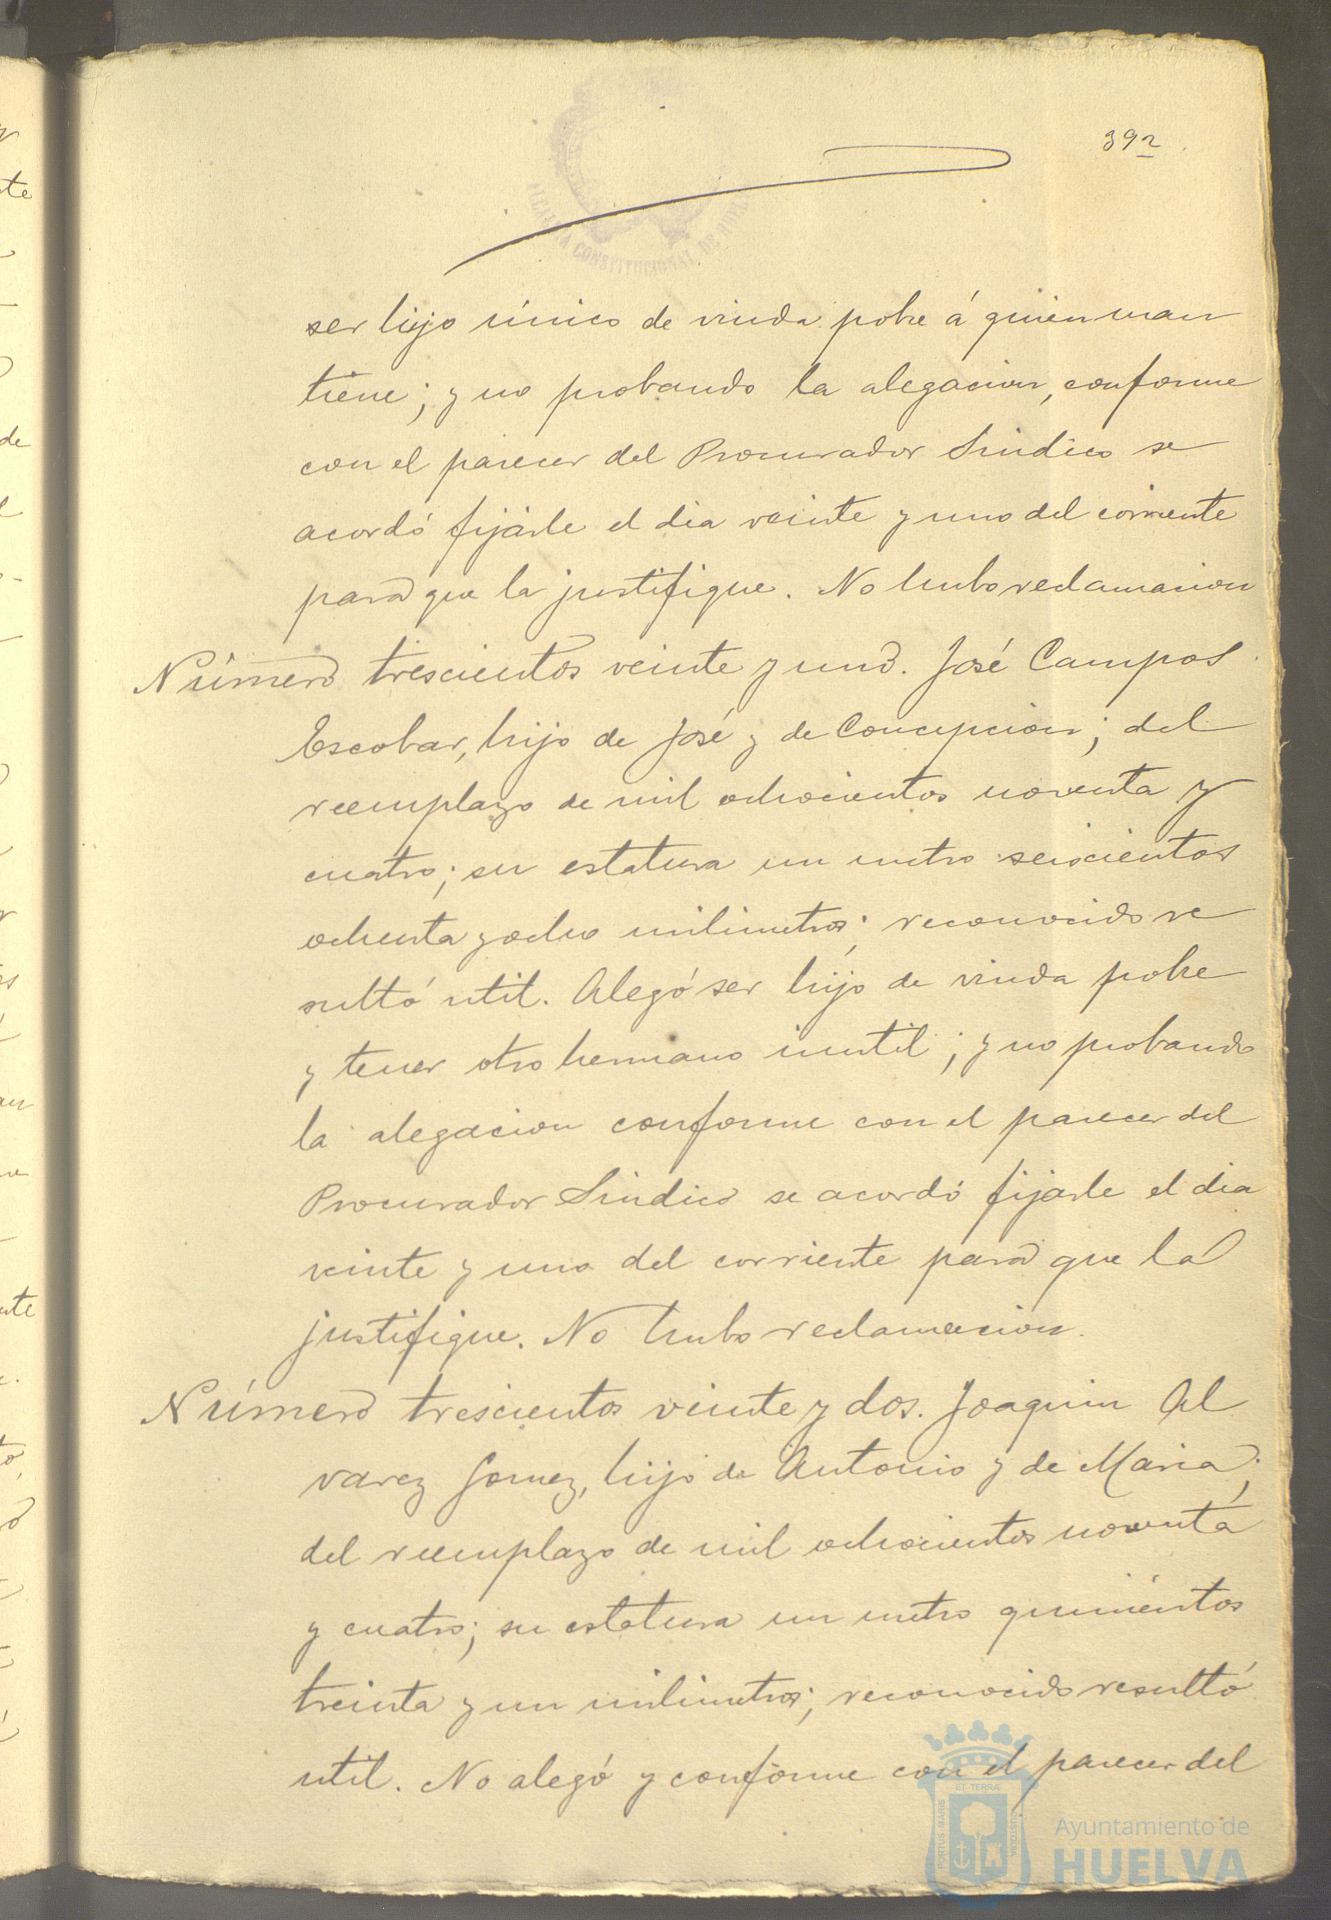 392
ALCALDIA CONSTITUCIONAL DE HUELVA
ser hijo único de viuda pobre á quien man
tiene; y no probando la alegacion, conforme
con el parecer del Procurador Sindico se
acordó fijarle el dia veinte y uno del corriente
para que la justifique. No hubo reclamacion
Número trescientos veinte y uno. José Campos
Escobar, hijo de José y de Concepcion; del
reemplazo de mil ochocientos noventa y
cuatro; su estatura un metro seiscientos
ochenta y ocho milimetros; reconocido re
sultó util. Alegó ser hijo de viuda pobre
y tener otro hermano inutil; y no probando
la alegacion conforme con el parecer del
Procurador Sindico se acordó fijarle el dia
veinte y uno del corriente para que la
justifique. No hubo reclamacion.
Número trescientos veinte y dos. Joaquin Al
varez Gomez, hijo de Antonio y de Maria;
del reemplazo de mil ochocientos noventa
y cuatro; su estatura un metro quinientos
treinta y un milimetros; reconocido resultó
util. No alegó y conforme con el parecer del
PORTUS MARIS ET TERRAE CUSTODIA
Ayuntamiento de
HUELVA